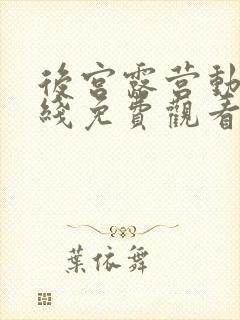 後宮露营動
綫免費觀看
葉依舞